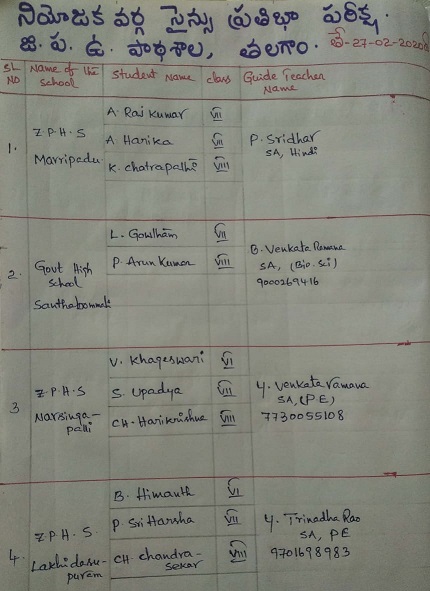 నియోజక వర్గ సైన్సు ప్రతిభా పరీక్ష.
జి. ప. ఉ. పాఠశాల, తలగాం. తే-27-02-2020
SL NO Name of the School Student Name class Guide Teacher Name
1. Z.P.H.S Marripadu
A Raj Kumar VII
A Harika VII
K. chatrapathi VIII
P. Sridhar
SA, Hindi
2. Govt High
School
Santhabommali
L. Gowtham VII
P. Arun Kumar VIII
B. Venkata Ramana
SA, (Bio. Sci)
9000269416
3 Z.P.H.S
Narsinga-
palli
V. Khageswari VI
S. Upadya VII
CH. Harikrishna VIII
Y. Venkata ramana
SA, (P.E)
7730055108
4. Z.P.H.S.
Lakhidasu-
puram
B. Himanth VI
P. Sri Harsha VII
CH. Chandra-
sekar VIII
Y. Trinadha Rao
SA, PE
9701698983